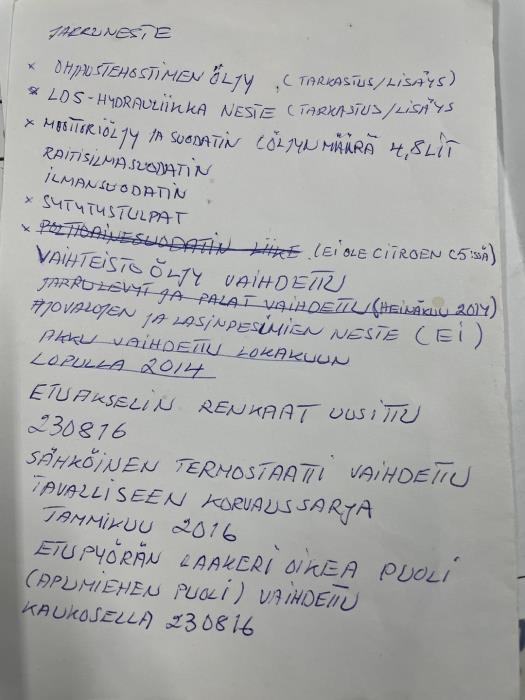 JARRUNESTE
x OHJAUSTEHOSTIMEN ÖLJY (TARKASTUS/LISÄYS)
x LDS-HYDRAULIIKKA NESTE (TARKASTUS/LISÄYS
x MOOTTORIÖLJY JA SUODATIN (ÖLJYNMÄÄRÄ 4,8LIT
RAITISILMASUODATIN
ILMANSUODATIN
x SYTYTYSTULPAT
x POLTTOAINESUODATIN LIIKE (EI OLE CITROEN C5:SSÄ)
VAIHTEISTOÖLJY VAIHDETTU
JARRULEVYT JA PALAT VAIHDETTU (HEINÄKUU 2014)
AJOVALOJEN JA LASINPESIMIEN NESTE (EI)
AKKU VAIHDETTU LOKAKUUN
LOPULLA 2014
ETUAKSELIN RENKAAT UUSITTU
230816
SÄHKÖINEN TERMOSTAATTI VAIHDETTU
TAVALLISEEN KORVAUSSARJA
TAMMIKUU 2016
ETUPYÖRÄN LAAKERI OIKEA PUOLI
(APUMIEHEN PUOLI) VAIHDETTU
KAUKOSELLA 230816